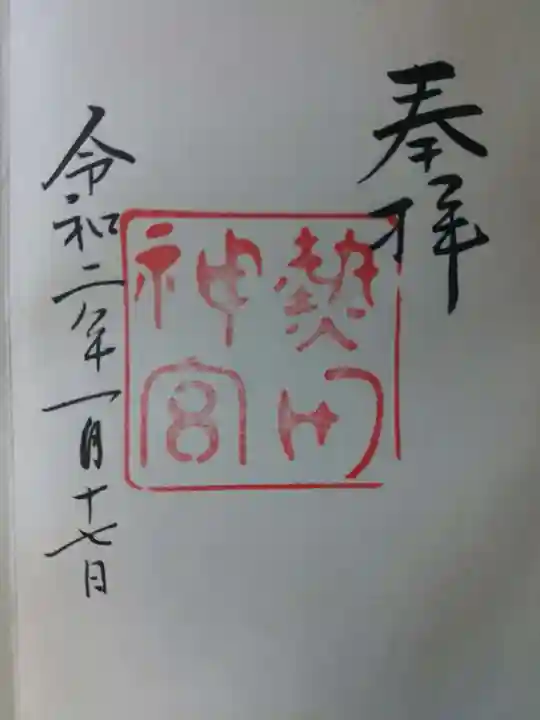 奉拝
熱田
神宮
令和二年一月十七日